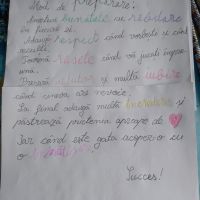 Mod de preparare:
Amesteca bunătate cu răbdare
în fiecare zi.
Adaugă respect când vorbești și când
asculți.
Toarnă râsete când vă jucați împre-
ună.
Presară ajutor și multă iubire
când cineva are nevoie.
La final adaugă multă încredere și
păstrează prietenia aproape de
Iar când este gata acoper-o cu
o
Succes!